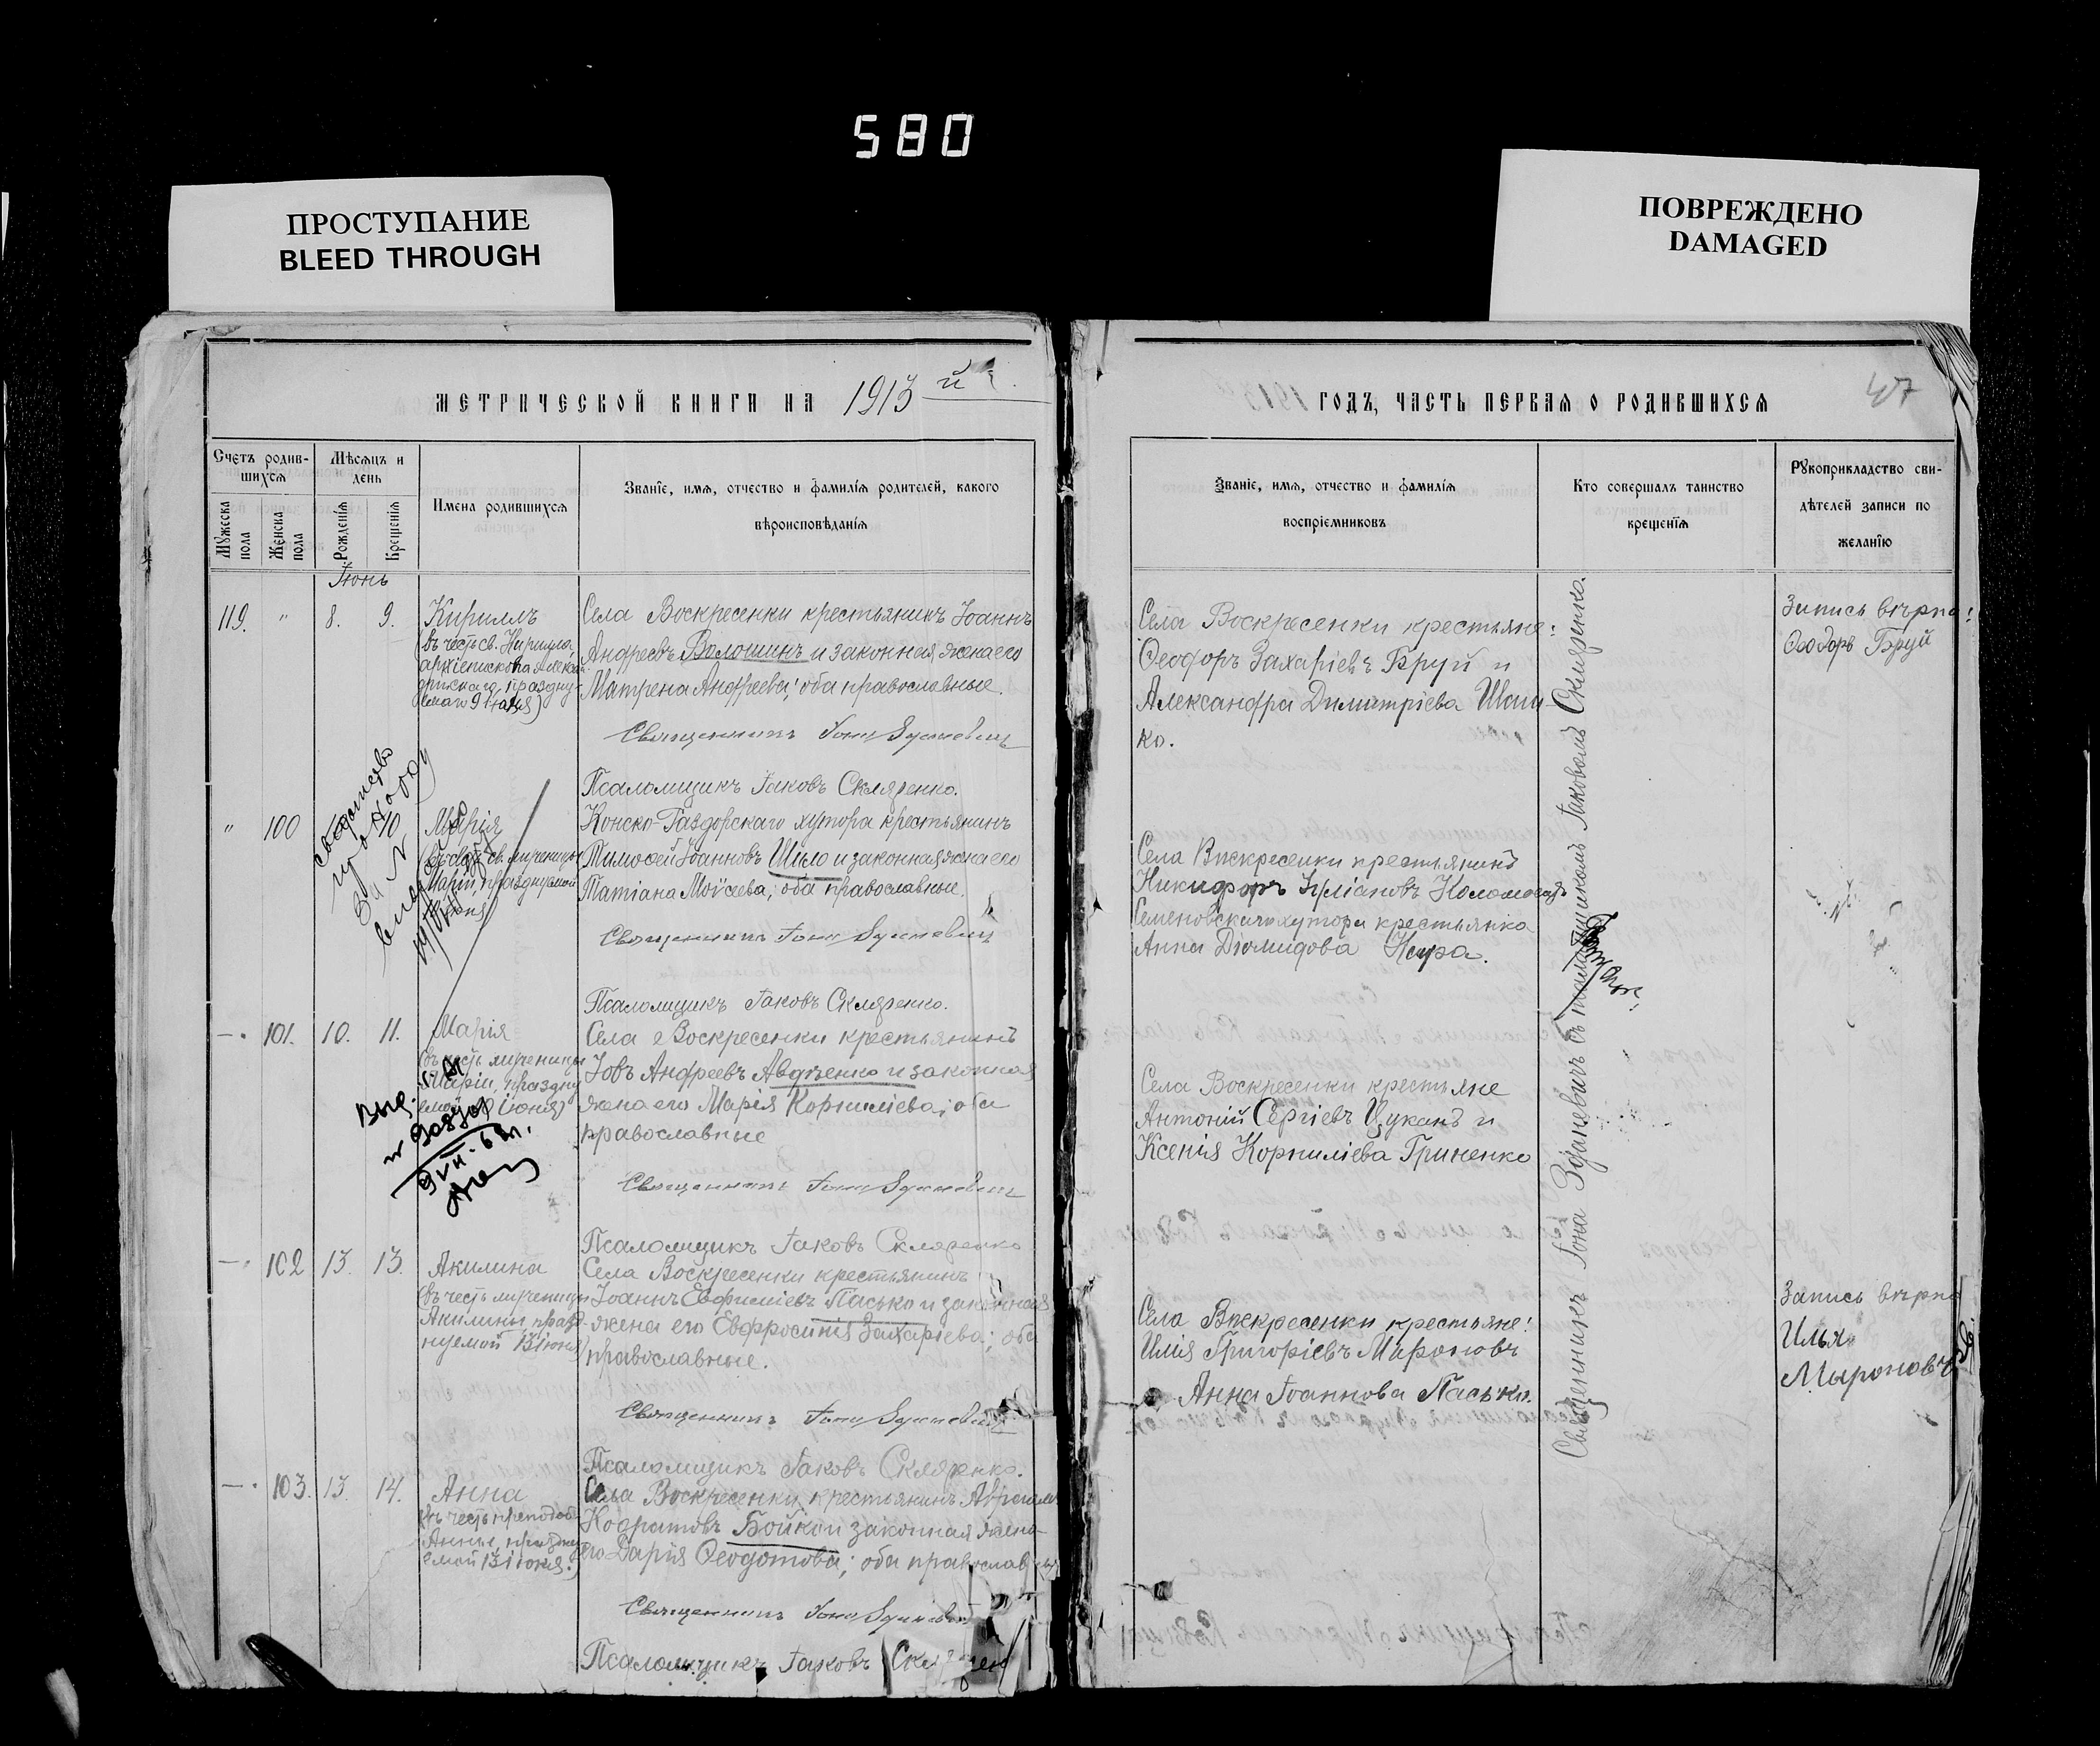 580
ПРОСТУПАНИЕ
BLEED THROUGH
ПОВРЕЖДЕНО
DAMAGED
МЕТРИЧЕСКОЙ КНИГИ НА 1913 й
Счетъ родив-
шихся
Мужеска пола
Женска пола
Мѣсяцъ и
день
Рожденія
Крещенія
Имена родившихся
Званіе, имя, отчество и фамилія родителей, какого
вѣроисповѣданія
Іюнь
119. " 8. 9.
Кириллъ
(въ честь св. Кирилла,
архіепископа Алекса
дрискаго, праздну-
емаго 9 іюня)
Села Воскресенки крестьянинъ Іоаннъ
Андреевъ Волошинъ и законная жена его
Матрена Андреева; оба православные.
Священникъ Іона
Псаломщикъ Іаковъ Скляренко.
" 100 10
Марія
(въ честь св. мученицы
Маріи, празднуемой
іюня)
Конско-Раздорскаго хутора крестьянинъ
Тимофей Іоанновъ Шило и законная жена его
Татіана Моѵсеева; оба православные.
Священникъ Іона
Псаломщикъ Іаковъ Скляренко.
101. 10. 11.
Марія
(въ честь мученицы
Маріи, праздну
емой іюня)
Села Воскресенки крестьянинъ
Іовъ Андреевъ Авдѣенко и законная
жена его Марія Корнилієва; оба
православные
Священникъ Іона
Псаломщикъ Іаковъ Скляренко
102 13. 13.
Акилина
(въ честь мученицы
Акилины, празд-
нуемой 13 іюня)
Села Воскресенки крестьянинъ
Іоаннъ Евфиміевъ Пасько и законная
жена его Евфросинія Захаріева; оба
православные.
Священникъ Іона
Псаломщикъ Іаковъ Скляренко.
103. 13. 14.
Анна
(въ честь преподоб
Анны, праздну
емой 13 іюня.)
Села Воскресенки крестьянинъ
Кодратовъ Бойко и законная жена
его Дарія Ѳеодотова; оба православные
Священникъ Іона
Псаломщикъ Іаковъ
ГОДЪ, ЧАСТЬ ПЕРВАЯ О РОДИВШИХСЯ
47
Званіе, имя, отчество и фамилія
воспріемниковъ
Кто совершалъ таинство
крещенія
Рукоприкладство сви-
дѣтелей записи по
желанію
Села Воскресенки крестьяне:
Ѳеодоръ Захаріевъ Бруй и
Александра Димитріева
ко.
Запись вѣрна:
Ѳеодоръ Бруй
Села Воскресенки крестьянинъ
Никифоръ
Семеновскаго хутора крестьянка
Анна Діомидова
Села Воскресенки крестьяне
Антоній Сергіевъ Цуканъ и
Ксенія Корниліева Гриненко
Села Воскресенки крестьяне:
Илія Григоріевъ Мироновъ
Анна Іоаннова Пасько.
Запись вѣрна
Илья
Мыроновъ
Священникъ Іона Зданевичъ съ псаломщикомъ Іаковомъ Скляренко.